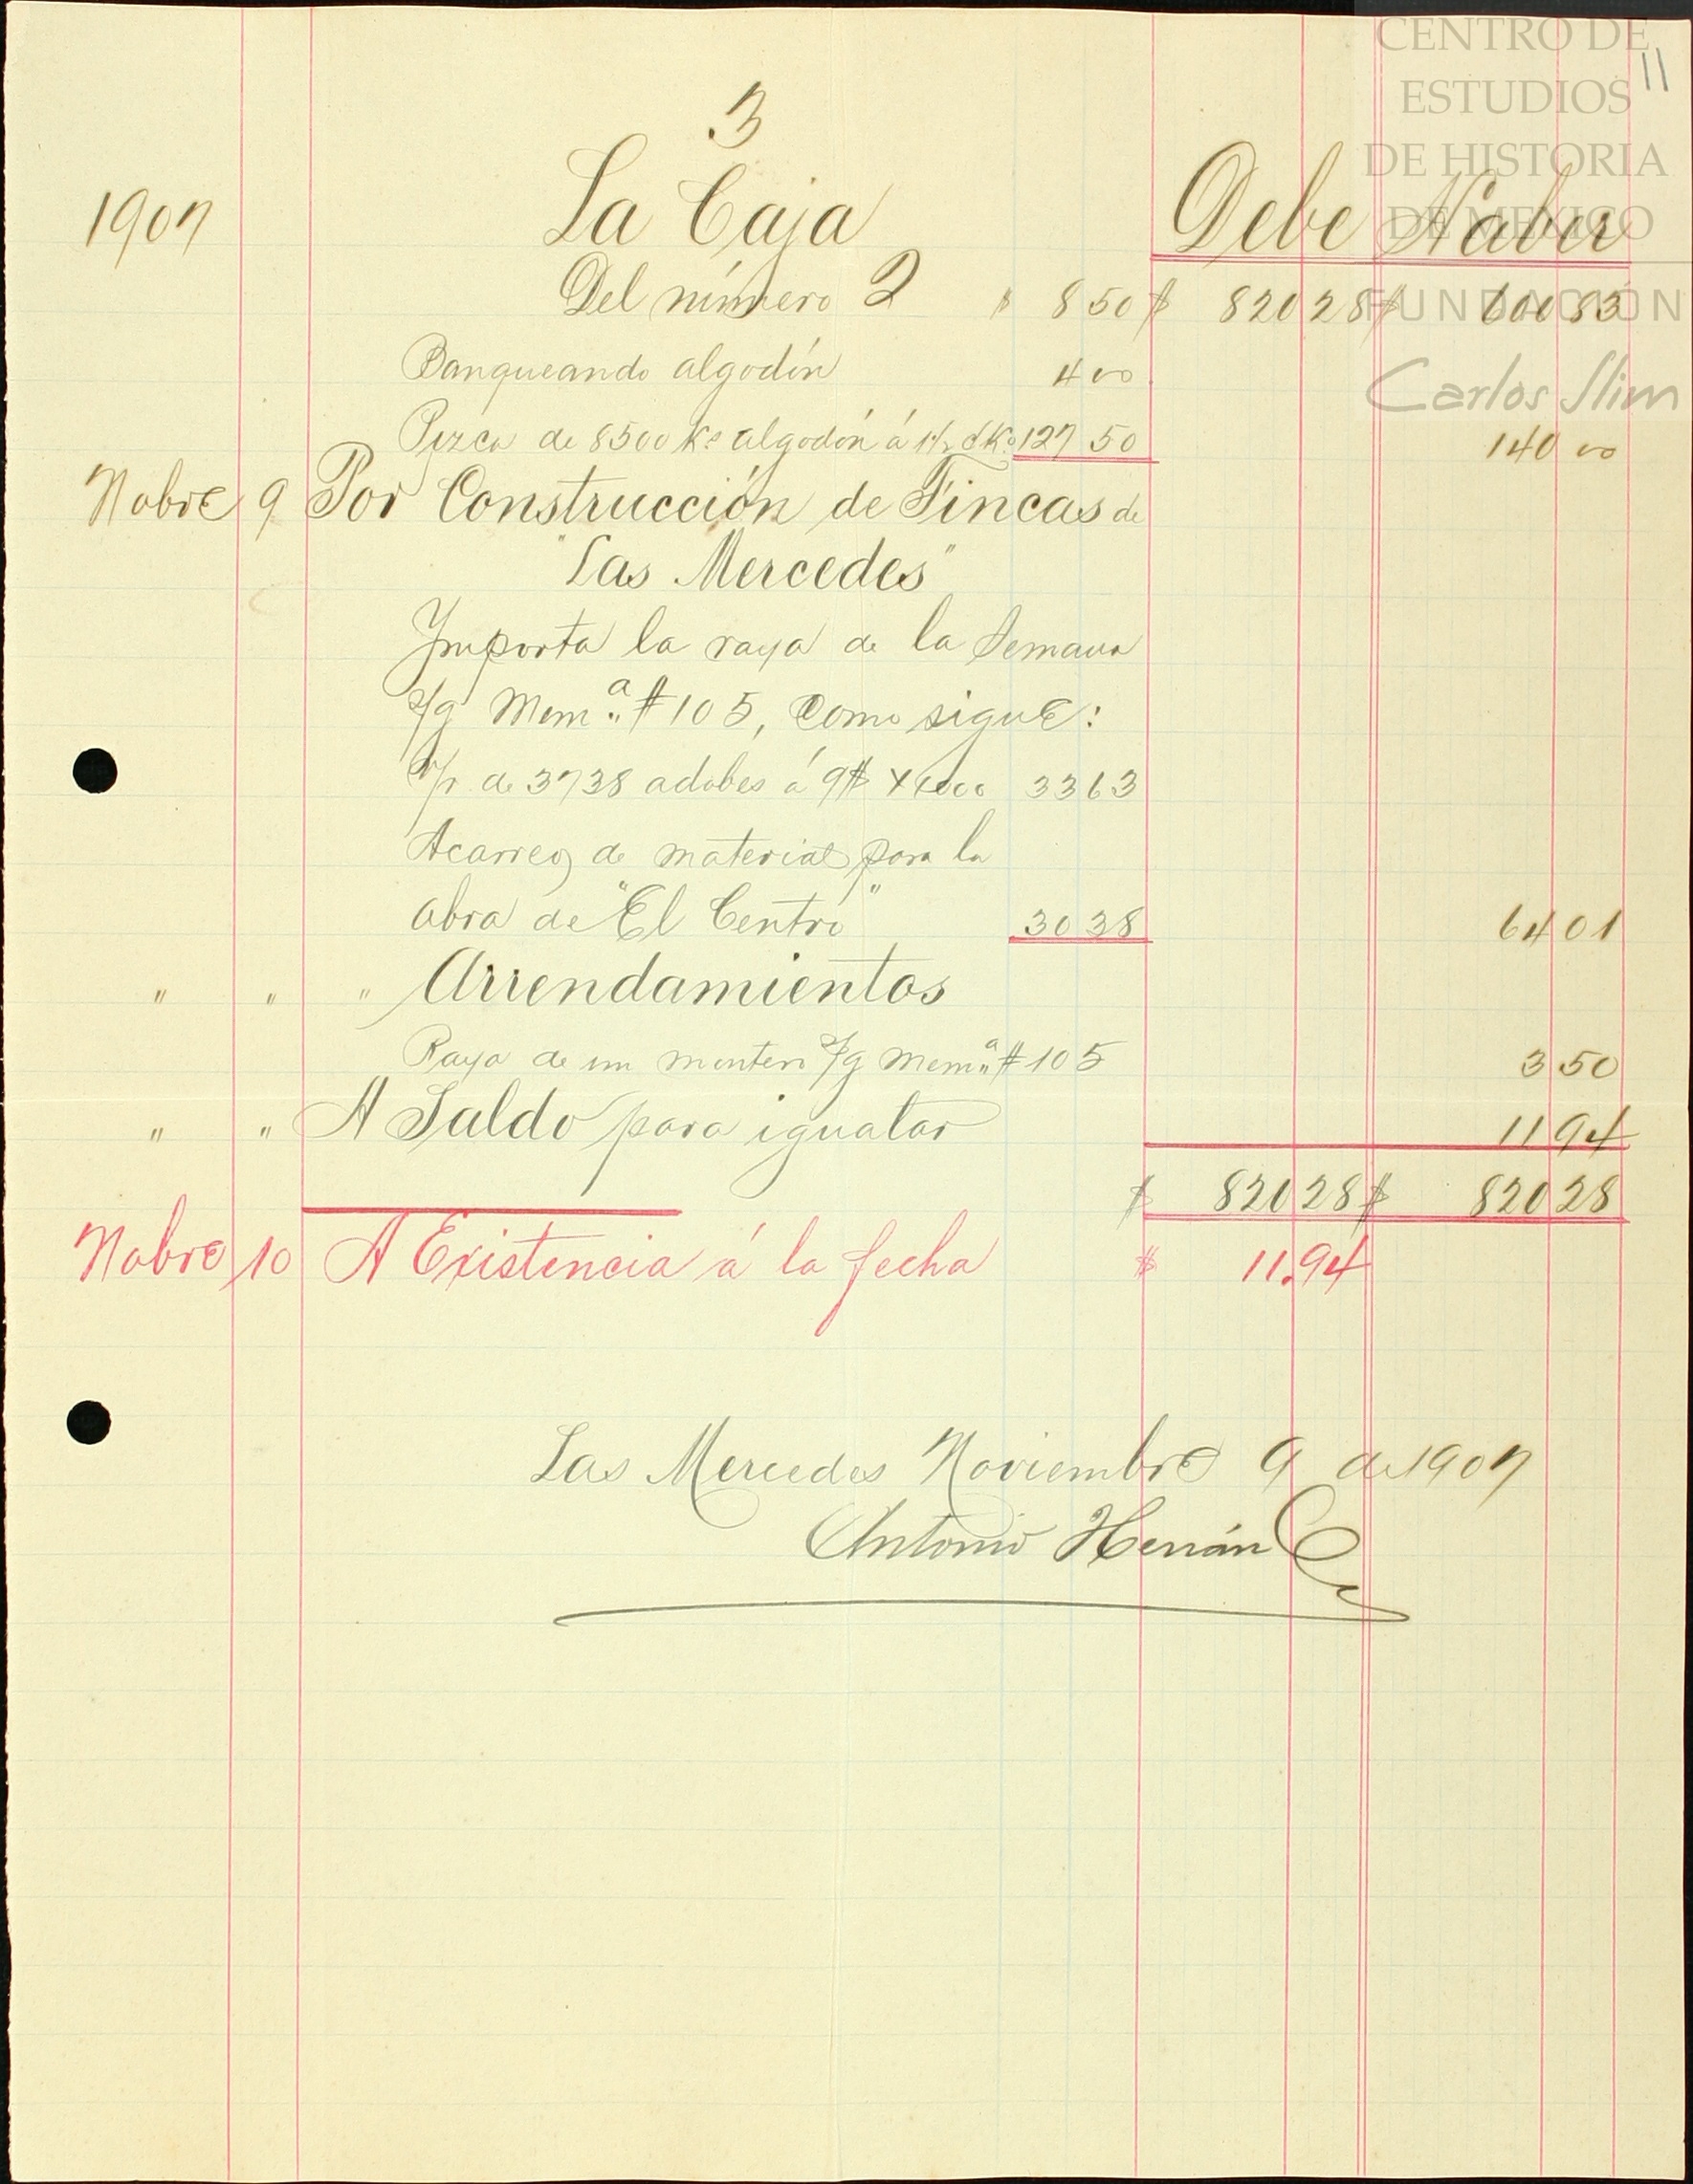 CENTRO DE
ESTUDIOS
DE HISTORIA
DE MEXICO
FUNDACIÓN
Carlos Slim
11
3
1907 La Caja Debe Haber
Del número 2 $ 8 50 $ 820 28 $ 600 83
Banqueando algodón 4 00
Pizca de 8500 Ks algodón á 1½ ¢ Ko 127 50 140 00
Nobre 9 Por Construcción de Fincas de
"Las Mercedes"
Importa la raya de la Semana
s/g Mem.a #105, como sigue:
H/r de 3738 adobes á 9$ X 1000 33 63
Acarreo de material para la
obra de "El Centro" 30 38 64 01
" " " Arrendamientos
Raya de un montero s/g Mem.a #105 3 50
" " A Saldo para igualar 11 94
$ 820 28 $ 820 28
Nobre 10 A Existencia á la fecha $ 11.94
Las Mercedes Noviembre 9 de 1907
Antonio Hernán